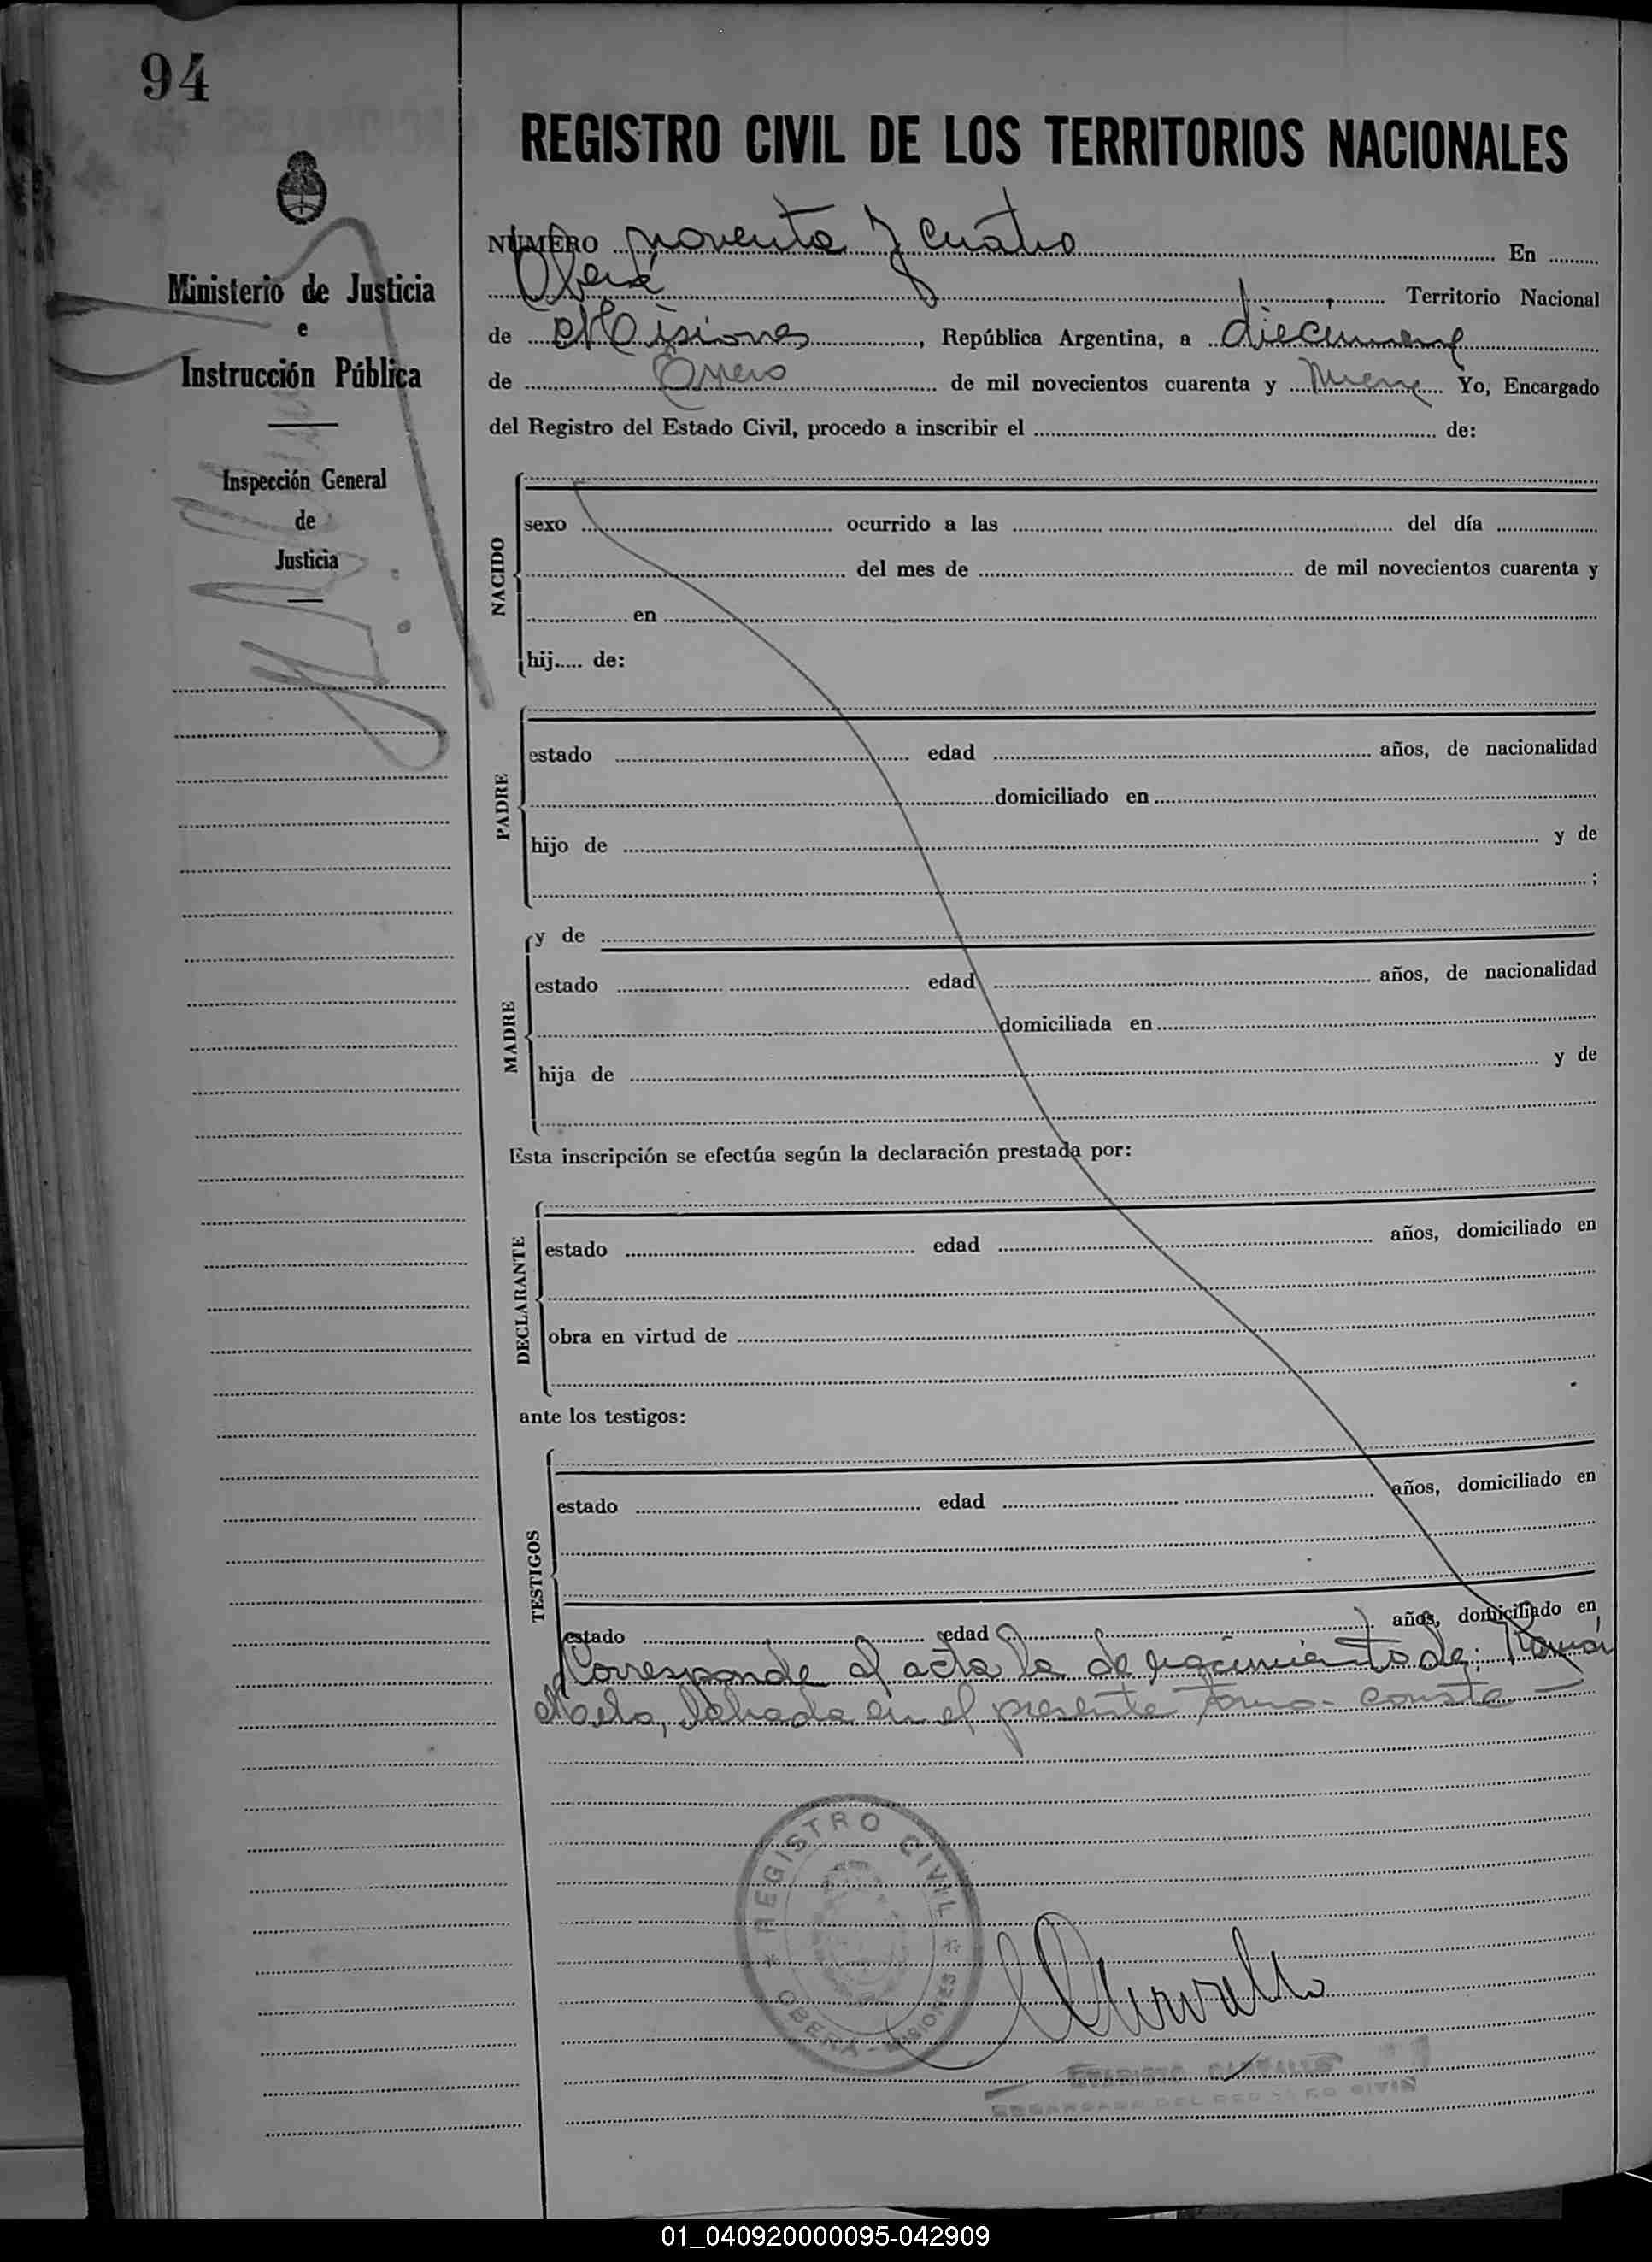 94
REGISTRO CIVIL DE LOS TERRITORIOS NACIONALES
Ministerio de Justicia
e
Instrucción Pública
Inspección General
de
Justicia
NÚMERO noventa y cuatro En
Oberá Territorio Nacional
de Misiones, República Argentina, a diecinueve
de Enero de mil novecientos cuarenta y nueve Yo, Encargado
del Registro del Estado Civil, procedo a inscribir el de:
NACIDO
sexo ocurrido a las del día
del mes de de mil novecientos cuarenta y
en
hij..... de:
PADRE
estado edad años, de nacionalidad
domiciliado en
hijo de y de
;
MADRE
y de
estado edad años, de nacionalidad
domiciliada en
hija de y de
Esta inscripción se efectúa según la declaración prestada por:
DECLARANTE
estado edad años, domiciliado en
obra en virtud de
ante los testigos:
TESTIGOS
estado edad años, domiciliado en
estado edad años, domiciliado en
Corresponde al acta la de nacimiento de: Ramón
Melo, labrada en el presente tomo - conste -
REGISTRO CIVIL
OBERÁ - MISIONES
EVARISTO CARVALLO
ENCARGADO DEL REGISTRO CIVIL
01_040920000095-042909